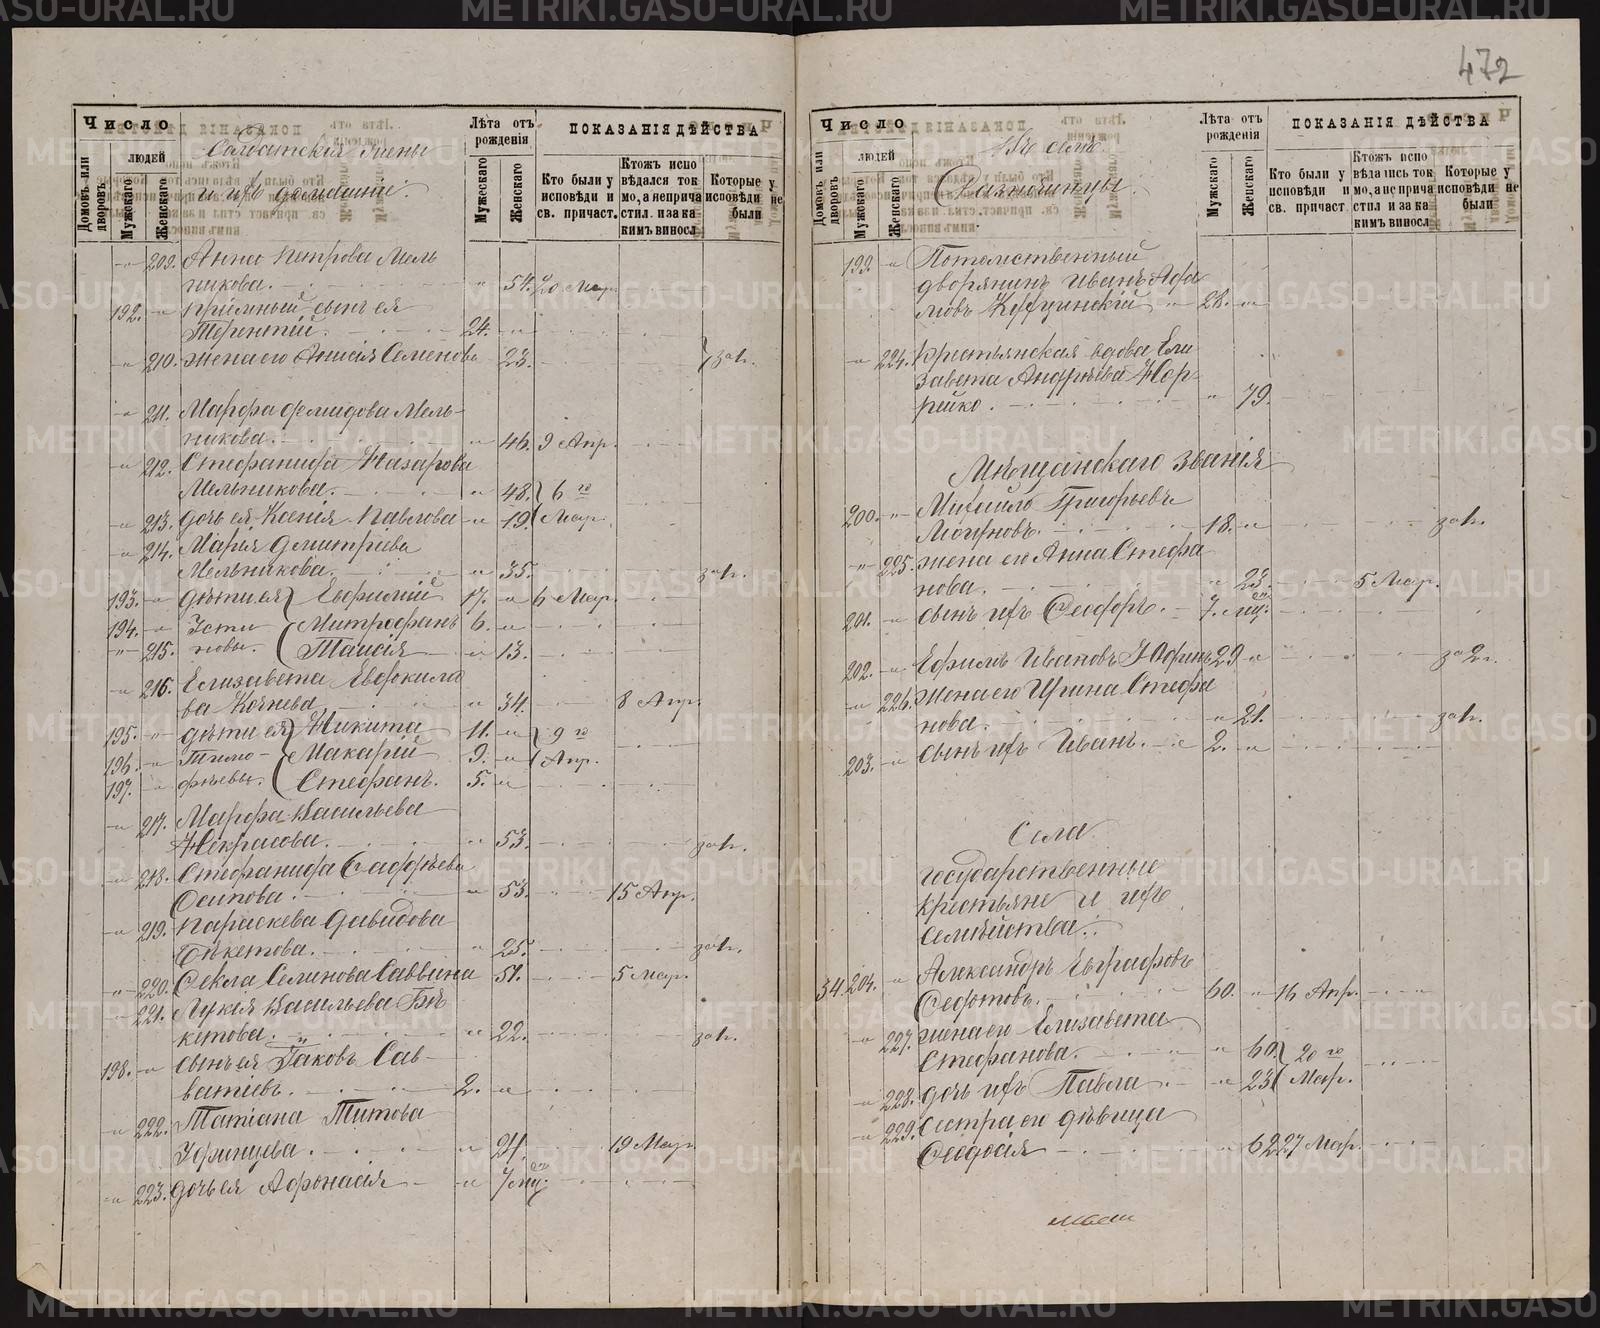 472
Число
Домовъ или дворовъ.
людей
Мужескаго
Женскаго
Солдатскія жены
и ихъ домашніе.
Лѣта отъ рожденія
Мужескаго
Женскаго
ПОКАЗАНІЯ ДѢЙСТВА
Кто были у исповѣди и св. причаст.
Ктожъ исповѣдался токмо, а не причастил. и за каким винослов
Которые у исповѣди не были
209. Анна Петрова Мель
никова. 54. 20 Мар.
192. Пріемный сынъ ея
Терентій. 24.
210. жена его Анисія Семенова 23. 1 за н.
211. Марфа Демидова Мель-
никова. 46. 9 Апр.
212. Стефанида Назарова
Мельникова. 48. 6 го
213. дочь ея Ксенія Павлова 19. Мар.
214. Марья Дмитріева
Мельникова. 35. за н.
193. дѣти ея Евфимій 17. 6 Мар.
194. Усти Митрофанъ 6.
215. новы. Таисія 13.
216. Елизавета Евдокимо
ва Кочнева 34. 8 Апр.
195. дѣти ея Никита 11. 9 го
196. Тимо- Макарій 9. Апр.
197. фѣевы. Стефанъ. 5.
217. Марфа Васильева
Некрасова. 53. за н.
218. Стефанида Фаддѣева
Осипова. 53. 15 Апр.
219. Параскева Давидова
Бѣкетова. 25. за н.
220. Фекла Семинова Саввина 51. 5 Мар.
221. Лукія Васильева Бѣ
кетова. 22. за н.
198. сынъ ея Іаковъ Сав-
ватіевъ. 2.
222. Татіана Титова
Уфинцева. 21. 19 Мар.
223. дочь ея Афонасія 7 мц.
Число
Домовъ или дворовъ
людей
Мужескаго
Женскаго
Въ селѣ
Разночинцы.
Лѣта отъ рожденія
Мужескаго
Женскаго
ПОКАЗАНІЯ ДѢЙСТВА
Кто были у исповѣди и св. причаст
Ктожъ исповѣдались токмо, а не причастил и за каким винослов
Которые у исповѣди не были
199. Потомственный
дворянинъ Иванъ
28.
224. Крестьянская вдова Ели
завета Андрѣева
79.
Мѣщанскаго званія
200. Михаилъ Григорьевъ
18. за н.
225. жена его Анна Стефа
нова. 23 5 Мар.
201. сынъ ихъ Феодоръ. 7. мц.
202. Ефимъ Ивановъ 29 за 2 г.
226. жена его Ирина Стефа
нова. 21. за н.
203. сынъ ихъ Иванъ. 2.
Села
государственные
крестьяне и ихъ
семейства.
34. 204. Александръ Евграфовъ
Федотовъ. 60. 16 Апр.
227. жена его Елизавета
Стефанова. 60. 20 го
228. дочь ихъ Павла. 23 Мар.
229. Сестра его дѣвица
Феодосія 62 27 Мар.
METRIKI.GASO-URAL.RU